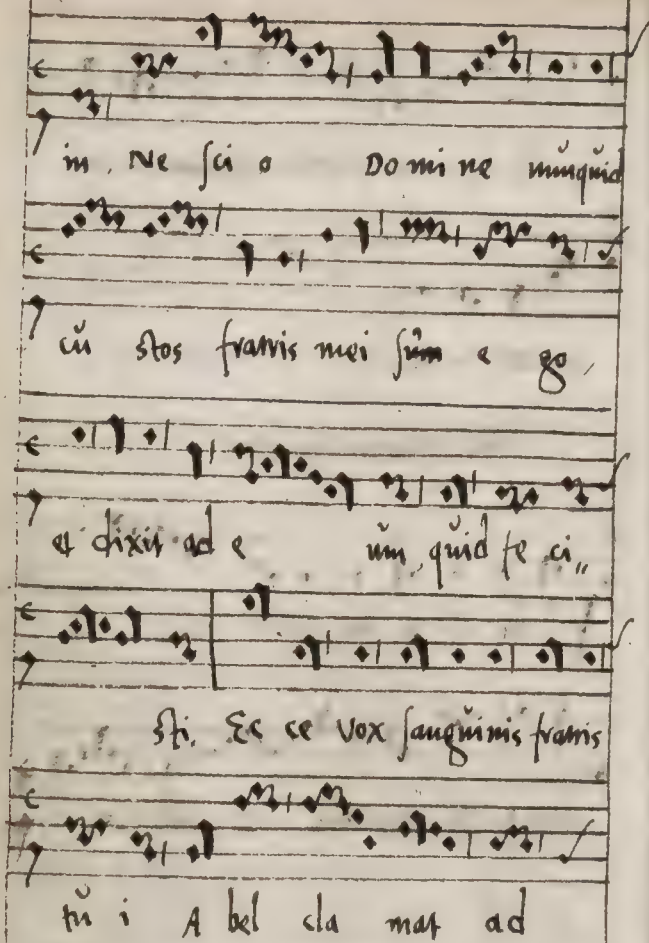 in. Ne sci o Do mi ne nũnquid
cũ stos fratris mei sũm e go,
et dixit ad e ũm, quid fe ci,,
sti. Ec ce vox sangũinis fratris
tũ i A bel cla mat ad